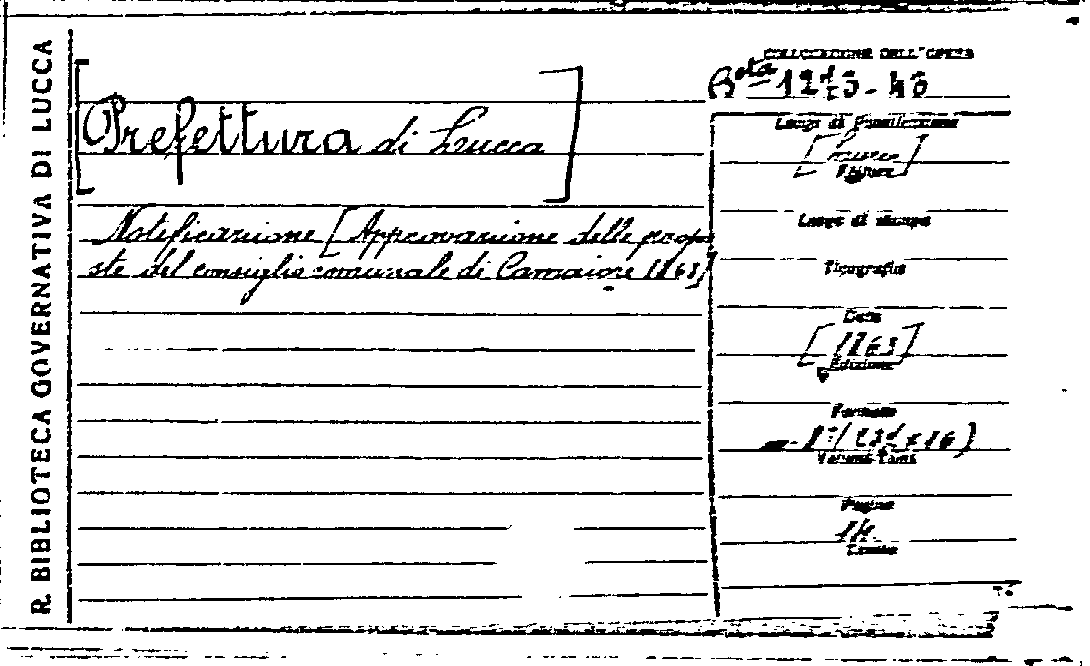 R. BIBLIOTECA GOVERNATIVA DI LUCCA
[Prefettura di Lucca]
Notificazione [Approvazione delle propo
ste del consiglio comunale di Camaiore 1863]
COLLOCAZIONE DELL'OPERA
Bsta
Luogo di Pubblicazione
[Lucca]
Editore
Luogo di stampa
Tipografia
Data
[1863]
Edizione
Formato
Volumi-Tomi
Pagine